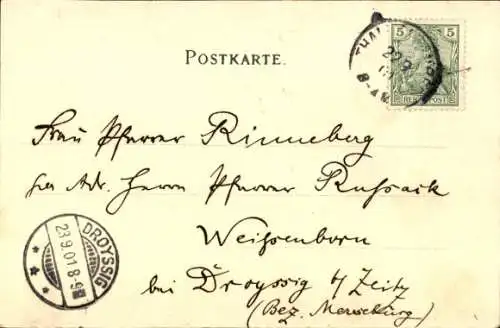 POSTKARTE.
5 5
REICHSPOST
22 9
8-9N
DROYSSIG
23.9.01.8-9
Frau Pfarrer Rinneberg
per Adr. Herrn Pfarrer Ruhsack
Weissenborn
bei Droyssig b/ Zeitz
(Bez. Merseburg)